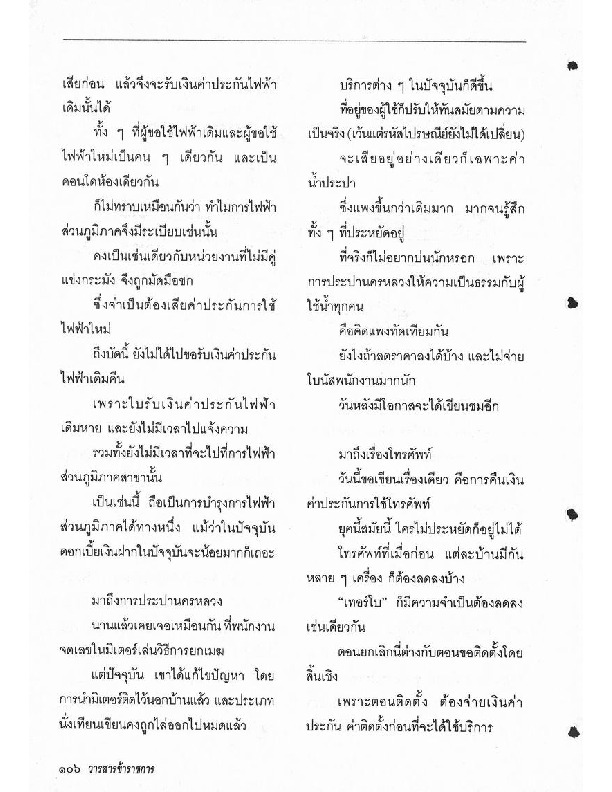 เสียก่อน แล้วจึงจะรับเงินค่าประกันไฟฟ้า
เดิมนั้นได้
ทั้ง ๆ ที่ผู้ขอใช้ไฟฟ้าเดิมและผู้ขอใช้
ไฟฟ้าใหม่เป็นคน ๆ เดียวกัน และเป็น
คอนโดห้องเดียวกัน
ก็ไม่ทราบเหมือนกันว่า ทำไมการไฟฟ้า
ส่วนภูมิภาคจึงมีระเบียบเช่นนั้น
คงเป็นเช่นเดียวกับหน่วยงานที่ไม่มีคู่
แข่งกระมัง จึงถูกมัดมือชก
ซึ่งจำเป็นต้องเสียค่าประกันการใช้
ไฟฟ้าใหม่
ถึงบัดนี้ ยังไม่ได้ไปขอรับเงินค่าประกัน
ไฟฟ้าเดิมคืน
เพราะใบรับเงินค่าประกันไฟฟ้า
เดิมหาย และยังไม่มีเวลาไปแจ้งความ
รวมทั้งยังไม่มีเวลาที่จะไปที่การไฟฟ้า
ส่วนภูมิภาคสาขานั้น
เป็นเช่นนี้ ถือเป็นการบำรุงการไฟฟ้า
ส่วนภูมิภาคได้ทางหนึ่ง แม้ว่าในปัจจุบัน
ดอกเบี้ยเงินฝากในปัจจุบันจะน้อยมากก็เถอะ
มาถึงการประปานครหลวง
นานแล้วเคยเจอเหมือนกัน ที่พนักงาน
จดเลขในมิเตอร์ เล่นวิธีการยกเมฆ
แต่ปัจจุบัน เขาได้แก้ไขปัญหา โดย
การนำมิเตอร์ติดไว้นอกบ้านแล้ว และประเภท
นั่งเทียนเขียนคงถูกไล่ออกไปหมดแล้ว
บริการต่าง ๆ ในปัจจุบันก็ดีขึ้น
ที่อยู่ของผู้ใช้ก็ปรับให้ทันสมัยตามความ
เป็นจริง (เว้นแต่รหัสไปรษณีย์ยังไม่ได้เปลี่ยน)
จะเสียอยู่อย่างเดียวก็เฉพาะค่า
น้ำประปา
ซึ่งแพงขึ้นกว่าเดิมมาก มากจนรู้สึก
ทั้ง ๆ ที่ประหยัดอยู่
ที่จริงก็ไม่อยากบ่นนักหรอก เพราะ
การประปานครหลวงให้ความเป็นธรรมกับผู้
ใช้น้ำทุกคน
คือคิดแพงทัดเทียมกัน
ยังไงถ้าลดราคาลงได้บ้าง และไม่จ่าย
โบนัสพนักงานมากนัก
วันหลังมีโอกาสจะได้เขียนชมอีก
มาถึงเรื่องโทรศัพท์
วันนี้ขอเขียนเรื่องเดียว คือการคืนเงิน
ค่าประกันการใช้โทรศัพท์
ยุคนี้สมัยนี้ ใครไม่ประหยัดก็อยู่ไม่ได้
โทรศัพท์ที่เมื่อก่อน แต่ละบ้านมีกัน
หลาย ๆ เครื่อง ก็ต้องลดลงบ้าง
"เทอร์โบ" ก็มีความจำเป็นต้องลดลง
เช่นเดียวกัน
ตอนยกเลิกนี้ต่างกับตอนขอติดตั้งโดย
สิ้นเชิง
เพราะตอนติดตั้ง ต้องจ่ายเงินค่า
ประกัน ค่าติดตั้งก่อนที่จะได้ใช้บริการ
๑๐๖ วารสารข้าราชการ